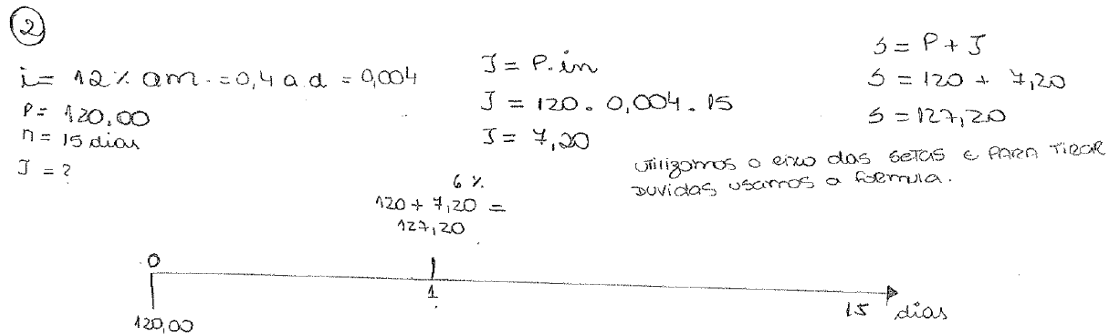 2
i = 12% am. = 0,4 a.d = 0,004
P = 120,00
n = 15 dias
J = ?
J = P.in
J = 120 . 0,004 . 15
J = 7,20
S = P + J
S = 120 + 7,20
S = 127,20
utilizamos o eixo das setas e para tirar
duvidas usamos a formula.
6%
120 + 7,20 =
127,20
0
1
15 dias
120,00